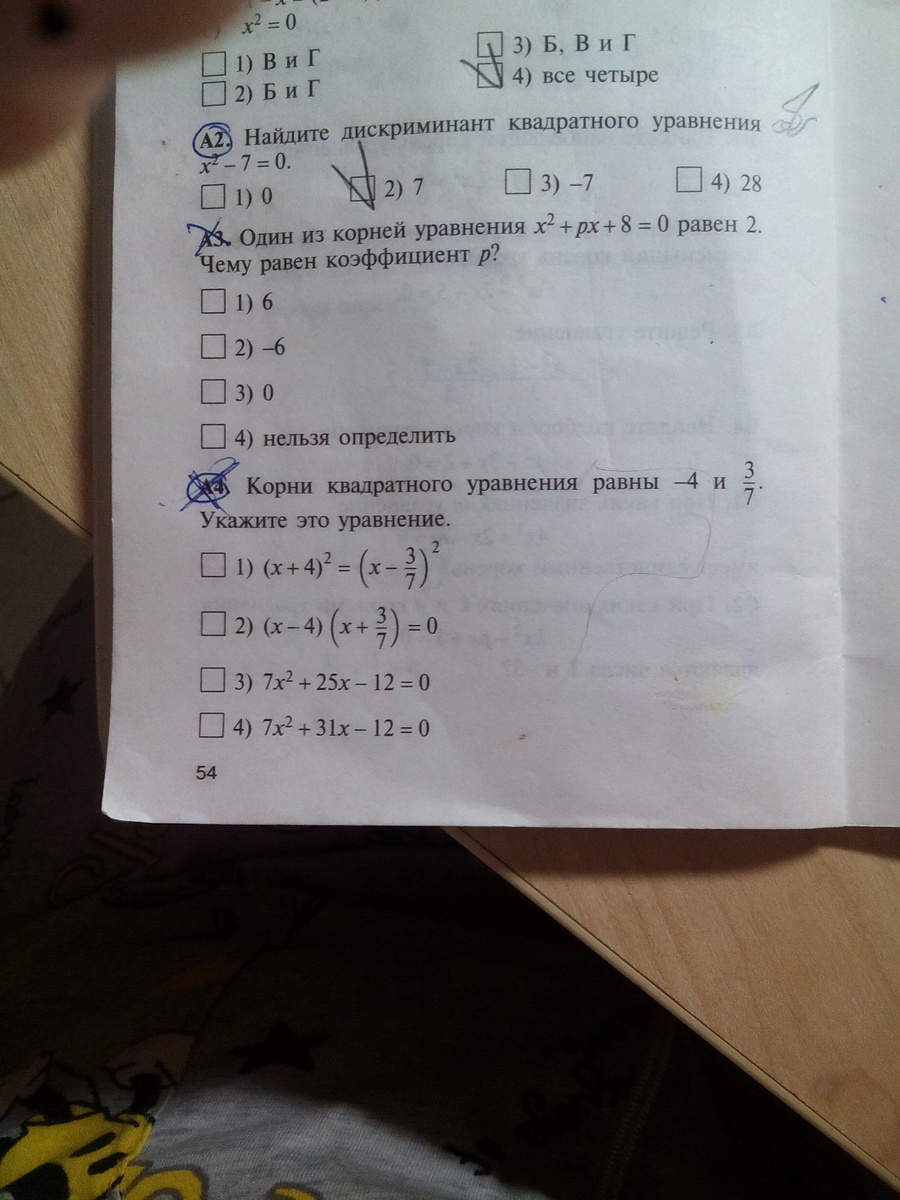 x² = 0
1) В и Г
2) Б и Г
3) Б, В и Г
4) все четыре
А2. Найдите дискриминант квадратного уравнения
x² – 7 = 0.
1) 0 2) 7 3) –7 4) 28
А3. Один из корней уравнения x² + px + 8 = 0 равен 2.
Чему равен коэффициент p?
1) 6
2) –6
3) 0
4) нельзя определить
А4. Корни квадратного уравнения равны –4 и 3/7.
Укажите это уравнение.
1) (x + 4)² = (x – 3/7)²
2) (x – 4)(x + 3/7) = 0
3) 7x² + 25x – 12 = 0
4) 7x² + 31x – 12 = 0
54